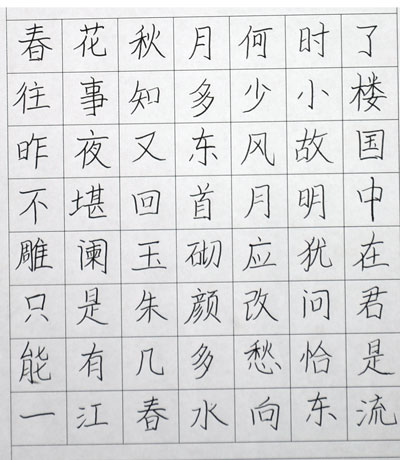 春花秋月何时了
往事知多少小楼
昨夜又东风故国
不堪回首月明中
雕阑玉砌应犹在
只是朱颜改问君
能有几多愁恰是
一江春水向东流